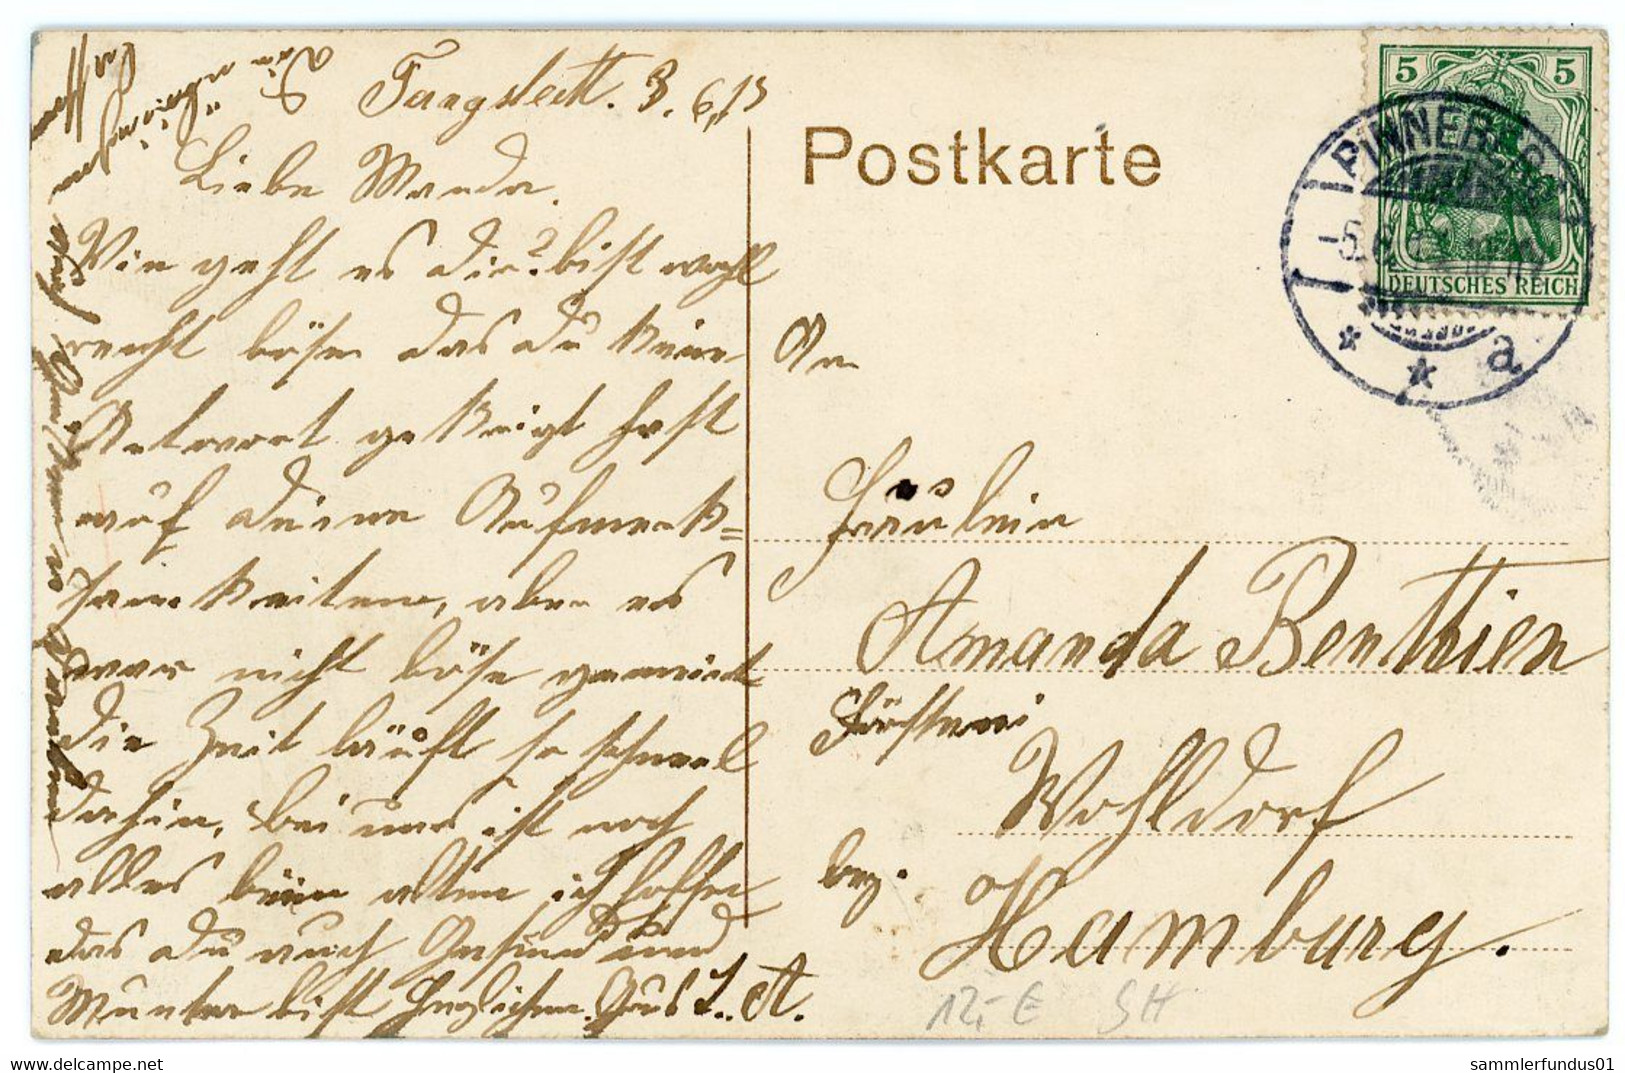 Tangstedt. 3. 6. 13
Liebe Manda.
Wie geht es dir? bist wohl
recht böse das du keine
Antwort gekrigt hast
auf deine Aufmerk=
samkeiten, aber es
war nicht böse gemeint
die Zeit läuft so schnell
dahin, bei uns ist noch
alles beim alten ich hoffe
das du auch Gesund und
Munter bist Herzlichen Grus T. A.
Postkarte
5 5
DEUTSCHES REICH
PINNEBERG
a
An
Fräulein
Amanda Benthien
Försterei
Wohldorf
bez. Hamburg.
12,- € SH
delcampe.net
sammlerfundus01